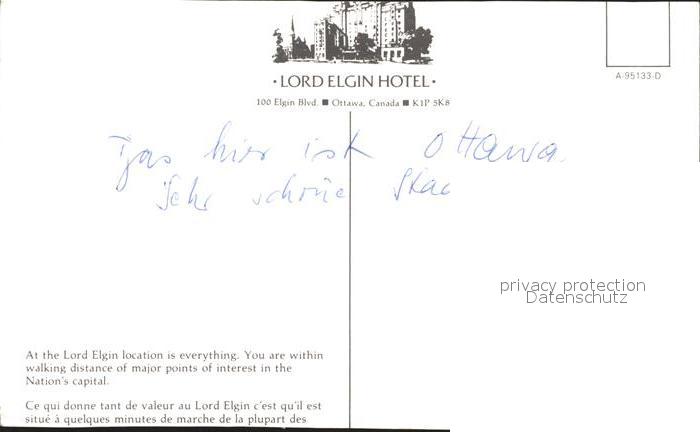 · LORD ELGIN HOTEL ·
A-95133-D
100 Elgin Blvd. ■ Ottawa, Canada ■ K1P 5K8
Das hier ist Ottawa.
Sehr schöne
privacy protection
Datenschutz
At the Lord Elgin location is everything. You are within
walking distance of major points of interest in the
Nation's capital.
Ce qui donne tant de valeur au Lord Elgin c'est qu'il est
situé à quelques minutes de marche de la plupart des